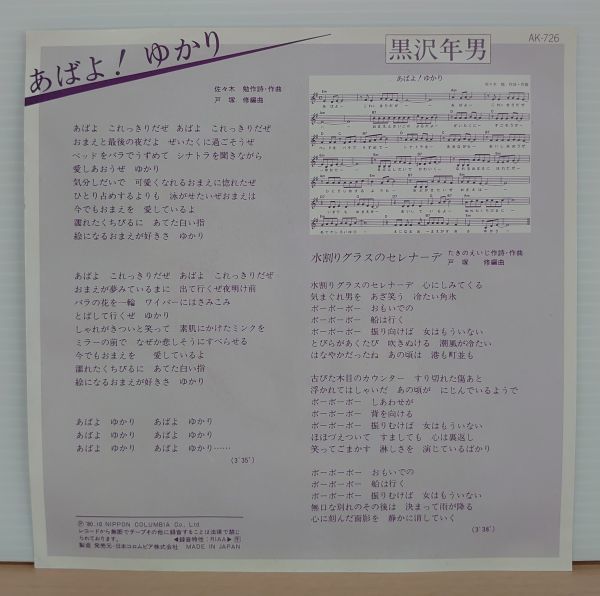 あばよ! ゆかり
佐々木 勉作詩・作曲
戸塚 修編曲
あばよ これっきりだぜ あばよ これっきりだぜ
おまえと最後の夜だよ ぜいたくに過ごそうぜ
ベッドをバラでうずめて シナトラを聞きながら
愛しあおうぜ ゆかり
気分しだいで 可愛くなれるおまえに惚れたぜ
ひとり占めするよりも 泳がせたいぜおまえは
今でもおまえを 愛しているよ
濡れたくちびるに あてた白い指
絵になるおまえが好きさ ゆかり
あばよ これっきりだぜ あばよ これっきりだぜ
おまえが夢みているまに 出て行くぜ夜明け前
バラの花を一輪 ワイパーにはさみこみ
とばして行くぜ ゆかり
しゃれがきついと笑って 素肌にかけたミンクを
ミラーの前で なぜか悲しそうにすべらせる
今でもおまえを 愛しているよ
濡れたくちびるに あてた白い指
絵になるおまえが好きさ ゆかり
あばよ ゆかり あばよ ゆかり
あばよ ゆかり あばよ ゆかり
あばよ ゆかり あばよ ゆかり……
(3'35")
Ⓟ '80.10 NIPPON COLUMBIA Co., Ltd.
レコードから無断でテープその他に録音することは法律で禁じ
られております。 ◀録音特性:RIAA▶
製造 発売元・日本コロムビア株式会社 MADE IN JAPAN
AK-726
黒沢年男
あばよ!ゆかり
水割りグラスのセレナーデ
たきのえいじ作詩・作曲
戸塚 修編曲
水割りグラスのセレナーデ 心にしみてくる
気まぐれ男を あざ笑う 冷たい角氷
ボーボーボー おもいでの
ボーボーボー 船は行く
ボーボーボー 振り向けば 女はもういない
とびらがあくたび 吹きぬける 潮風が冷たい
はなやかだったね あの頃は 港も町並も
古びた木目のカウンター すり切れた傷あと
浮かれてはしゃいだ あの頃が にじんでいるようで
ボーボーボー しあわせが
ボーボーボー 背を向ける
ボーボーボー 振りむけば 女はもういない
ほほづえついて すましても 心は裏返し
笑ってごまかす 淋しさを 演じているばかり
ボーボーボー おもいでの
ボーボーボー 船は行く
ボーボーボー 振りむけば 女はもういない
無口な別れのその後は 決まって雨が降る
心に刻んだ面影を 静かに消していく
(3'38")